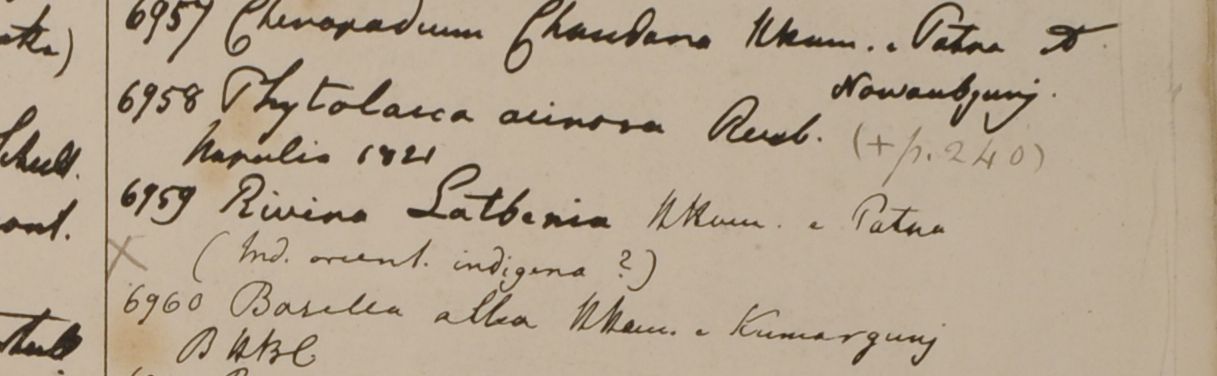 atta)
6957 Chenopodium Chandana HHam. e Patna &
Nowaubgunj.
6958 Phytolacca acinosa Roxb. (+ p. 240)
Napalia 1821
Schult.
6959 Rivina Latbenia HHam. e Patna
ont.
X (Ind. orient. indigena ?)
6960 Basella alba HHam. e Kumargunj
B HBC